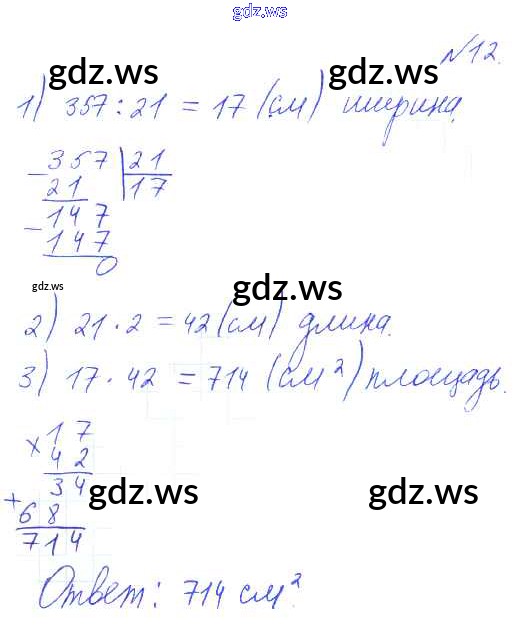 gdz.ws
№12.
gdz.ws gdz.ws
1) 357 : 21 = 17 (см) ширина.
- 357 | 21
21 | 17
- 147
147
0
gdz.ws gdz.ws
2) 21 · 2 = 42 (см) длина.
3) 17 · 42 = 714 (см²) площадь.
× 17
42
+ 34
68
714
gdz.ws gdz.ws
Ответ: 714 см².